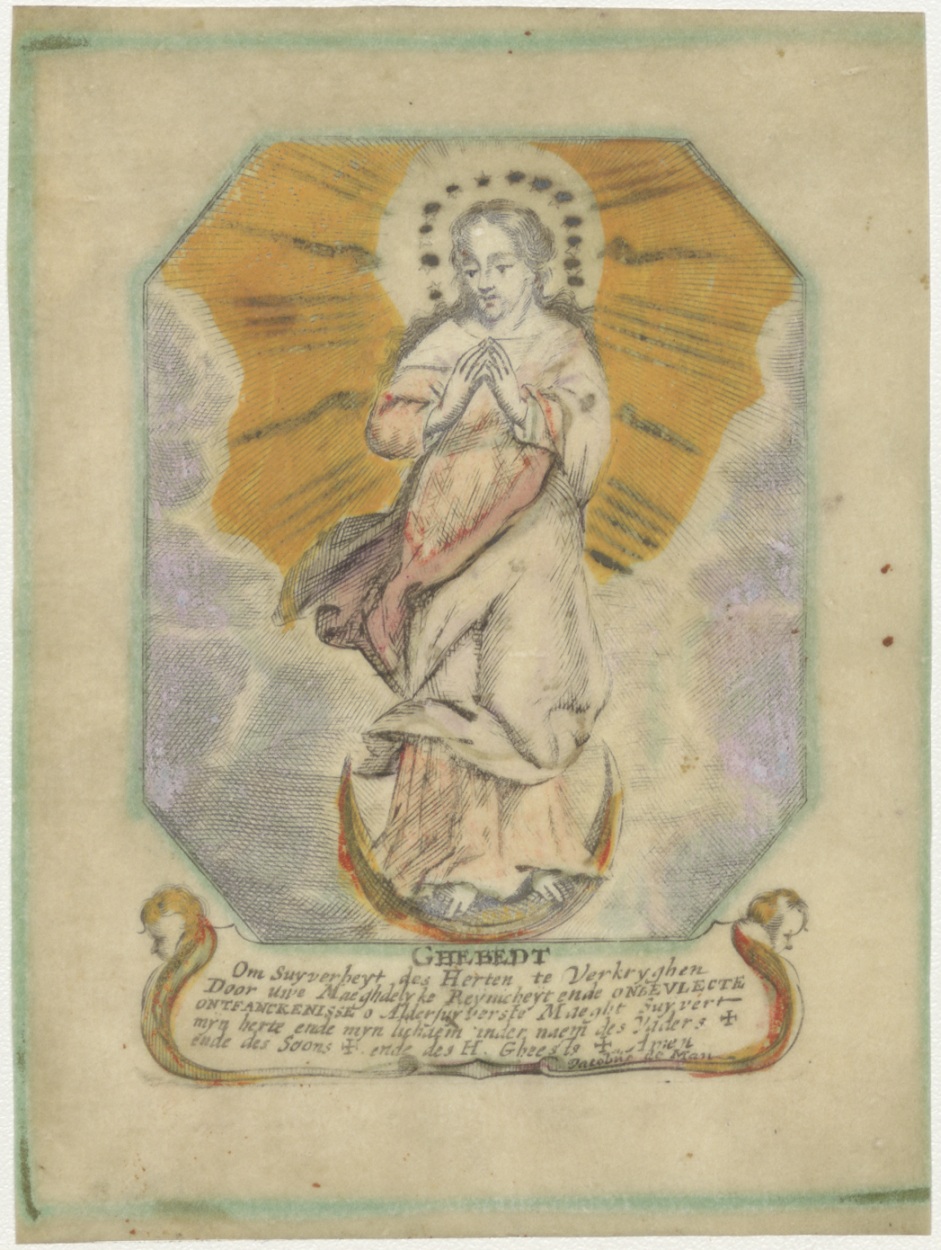 GHEBEDT
Om Suyverheyt des Herten te Verkryghen
Door uwe Maeghdelyke Reynicheyt ende ONBEVLECTE
ONTFANCKENISSE o Aldersuyverste Maeght Suyvert
myn herte ende myn lichaem inden naem des Vaders ✠
ende des Soons ✠ ende des H. Gheests ✠ Amen
Jacobus de Man